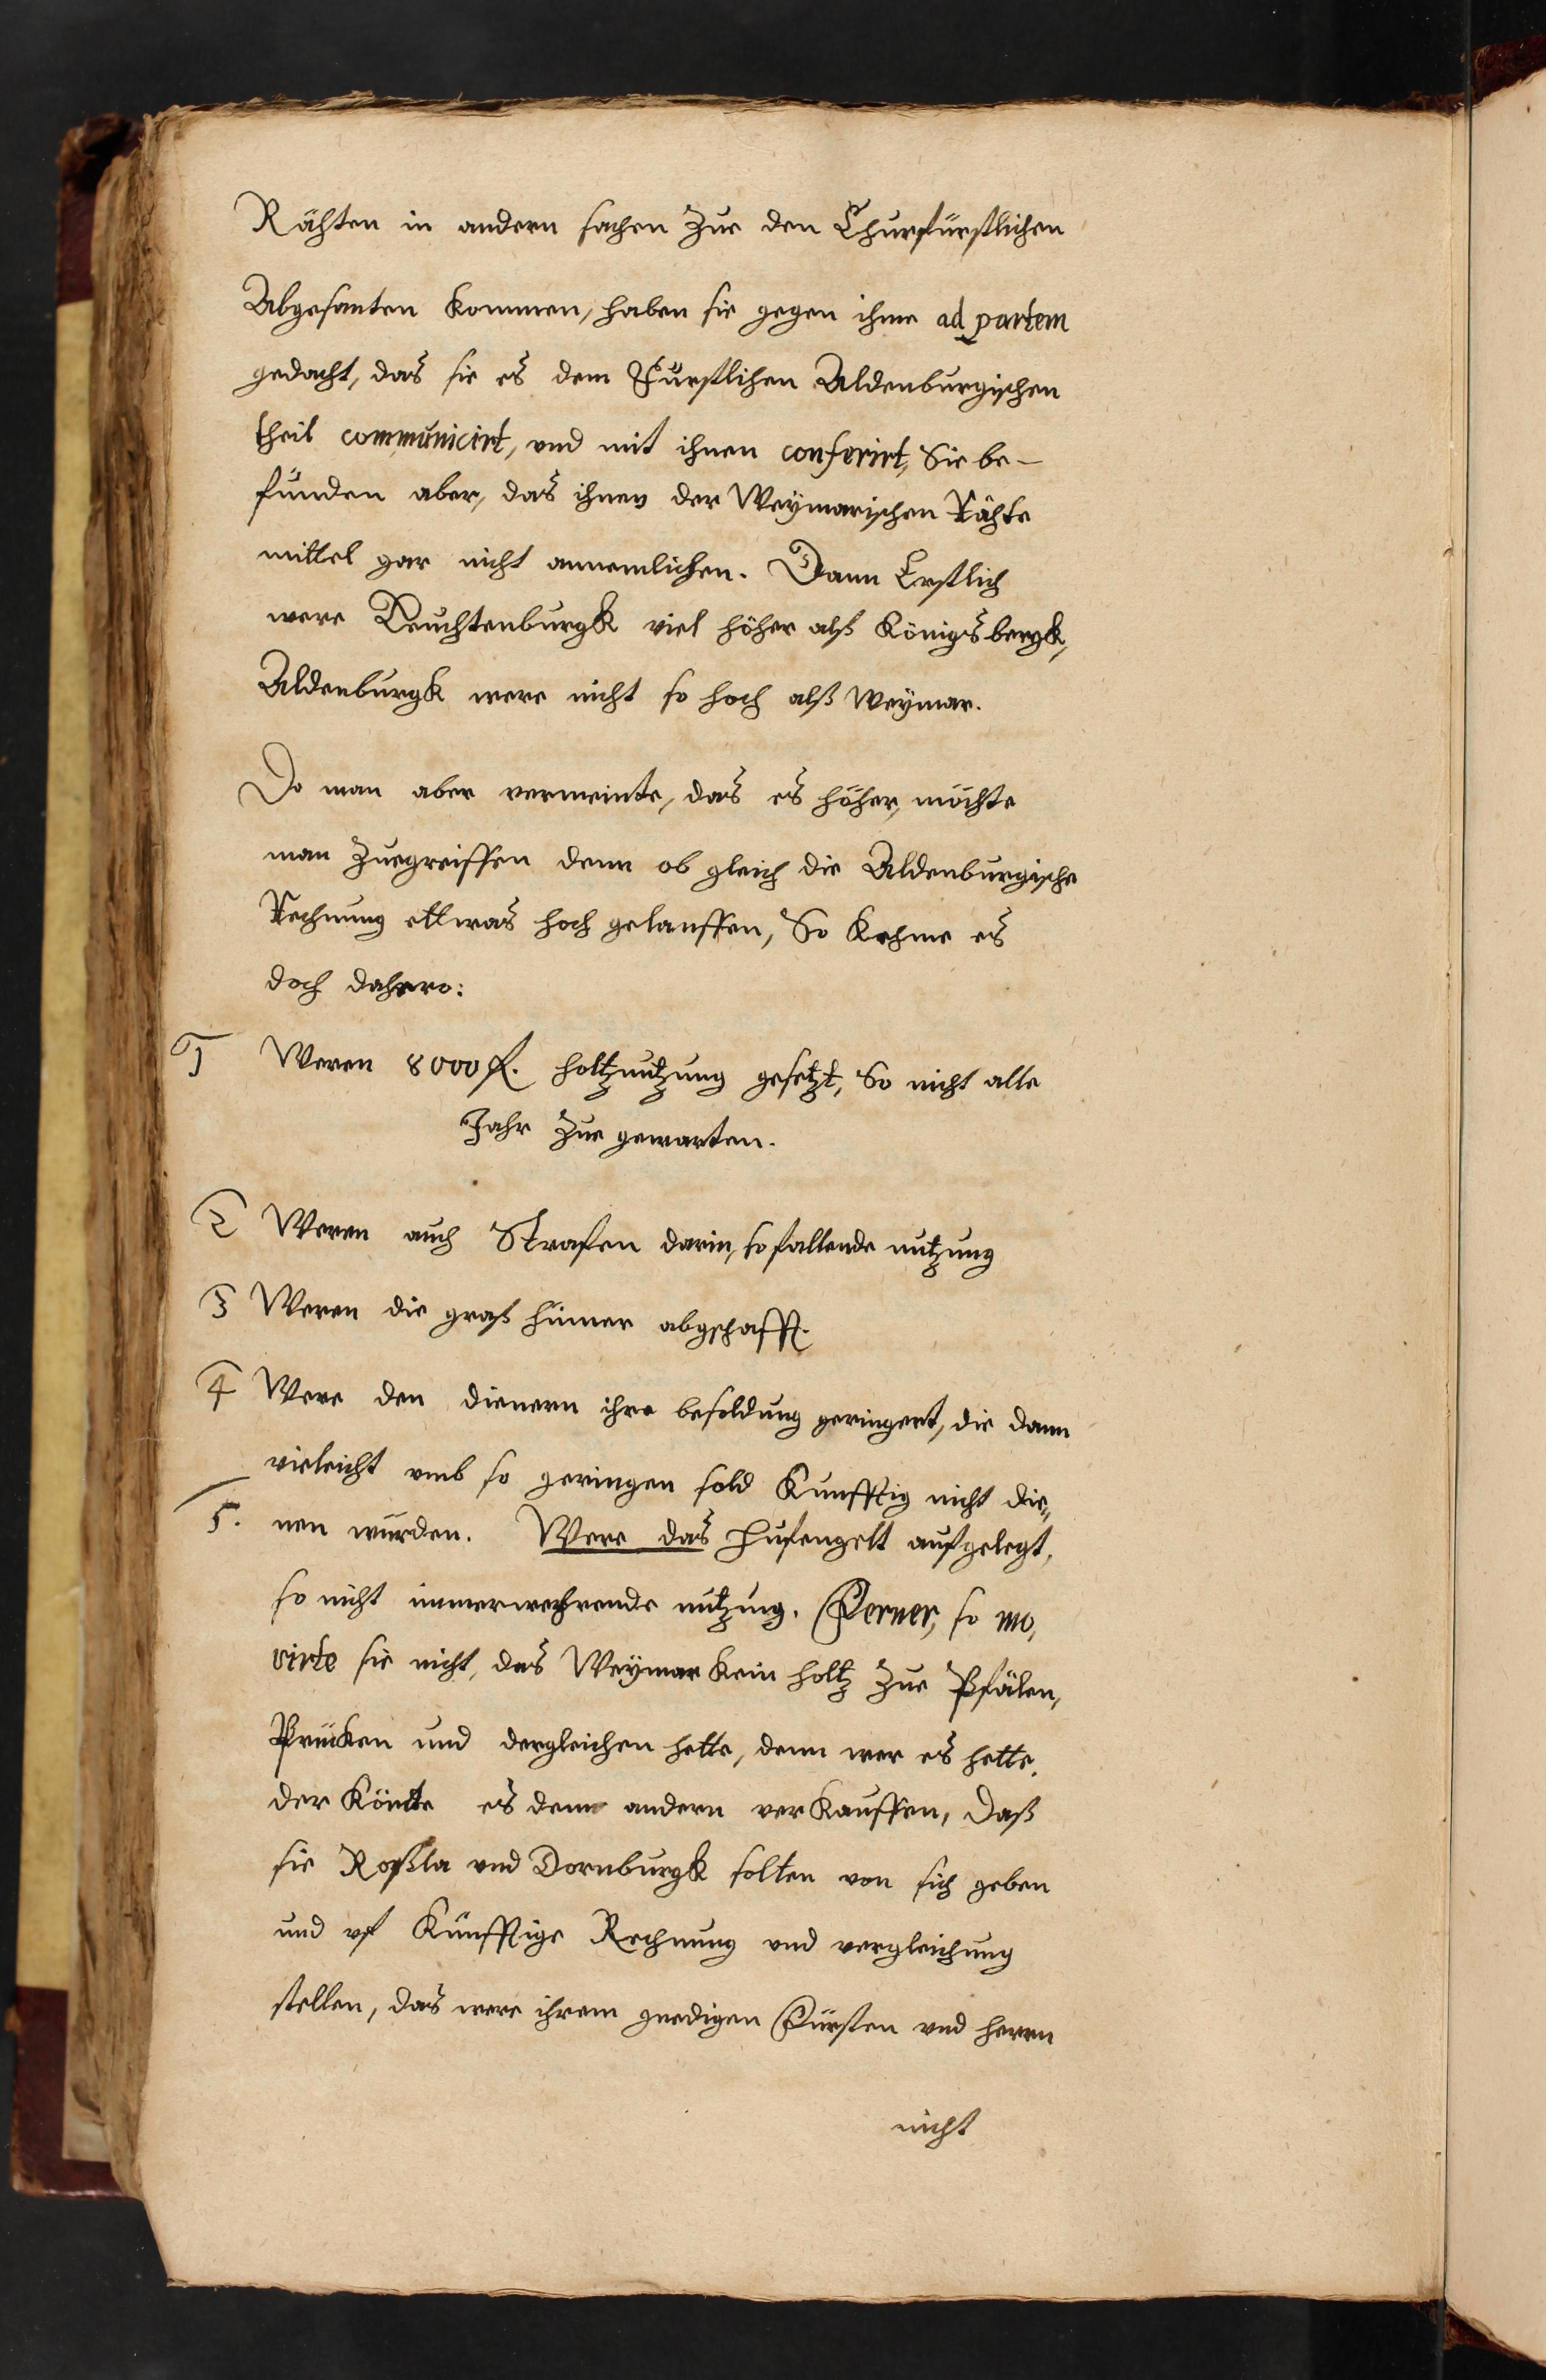 Rähten in andern sachen Zue den Churfürstlichen
Abgesanten kommen, haben sie gegen ihme ad partem
gedacht, das sie es dem Fürstlichen Aldenburgischen
theil communicirt, vnd mit ihnen conferirt, Sie be-
fünden aber, das ihnen der Weÿmarischen Rähte
mittel gar nicht annemlichen. Dann Erstlich
were Leuchtenburgk viel höher alß Königsbergk,
Aldenburgk were nicht so hoch alß Weÿmar.
Do man aber vermeinte, das es höher, möchte
man Zuegreiffen denn ob gleich die Aldenburgische
Rechnung ettwas hoch gelauffen, So kehme es
doch dahero:
1 Weren 8000 fl. holtznutzung gesetzt, So nicht alle
Jahr Zue gewarten.
2 Weren auch Strafen darin, so fallende nutzung
3 Weren die graß hüner abgschafft.
4 Were den dienern ihre besoldung geringert, die dann
vieleicht vmb so geringen sold Kunfftig nicht die„
5. nen würden. Were das Hufengelt aufgelegt,
so nicht immerwehrende nutzung. Ferner, so mo,
virte sie nicht, das Weÿmar kein holtz Zue Pfälen,
Prücken und dergleichen hette, denn wer es hette,
der Könte es dem andern verkauffen, Daß
sie Roßla vnd Dornburgk solten von sich geben
und vf Künfftige Rechnung vnd vergleichung
stellen, das were ihrem gnedigen Fürsten vnd herrn
nicht